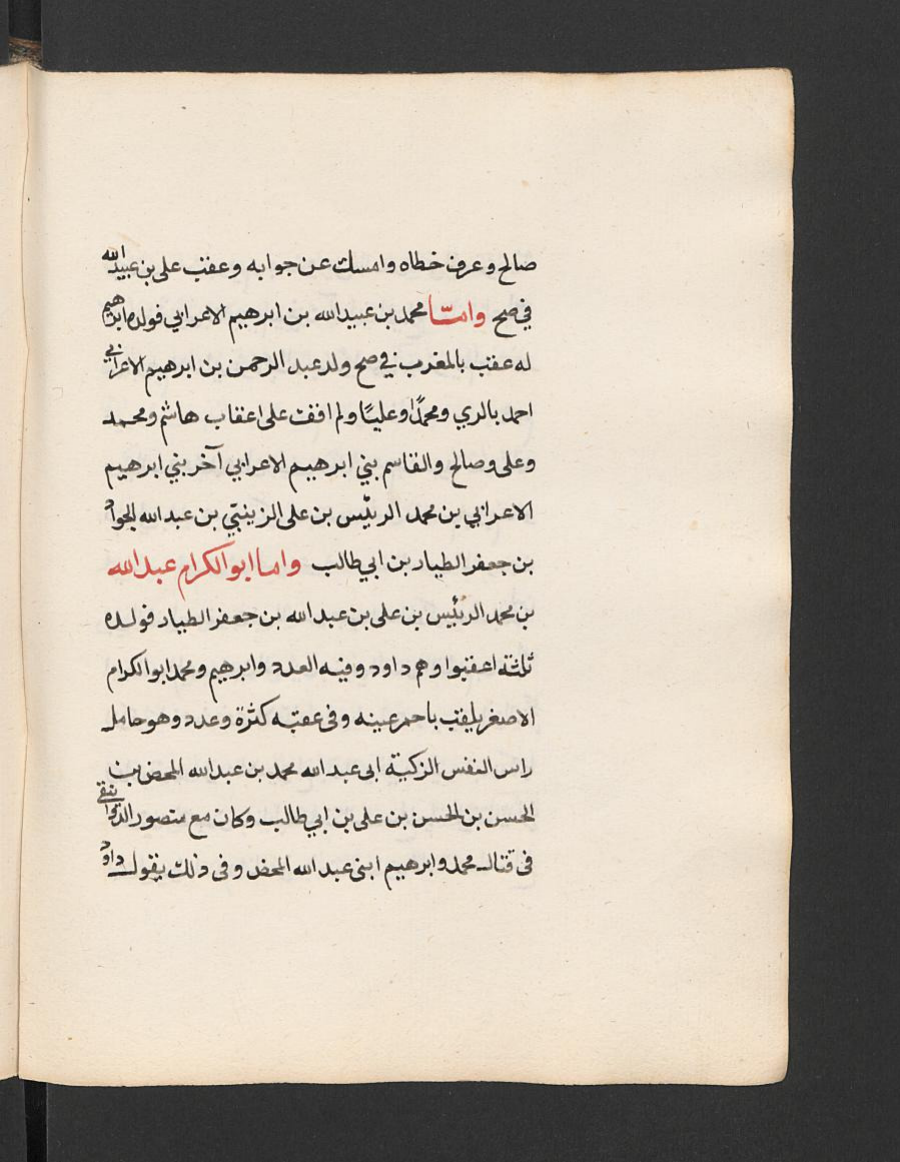 صالح وعرف خطاه وامسك عن جوابه وعقب على بن عبيد الله
في صح وامّا محمد بن عبيد الله بن ابرهيم الاعرابي فولده ابرهيم
له عقب بالمغرب في صح ولد عبد الرحمن بن ابرهيم الاعرابي
احمد بالري ومحمدًا وعليًا ولم اقف على اعقاب هاشم ومحمد
وعلى وصالح والقاسم بني ابرهيم الاعرابي آخر بني ابرهيم
الاعرابي بن محمد الرئيس بن على الزينبّي بن عبد الله الجواد
بن جعفر الطيار بن ابي طالب واما ابو الكرام عبد الله
بن محمد الرئيس بن على بن عبد الله بن جعفر الطيار فولده
ثلثة اعقبوا وهم داود وفيه العدد وابرهيم ومحمد ابو الكرام
الاصغر يلقب باحمر عينه وفى عقبه كثرة وعدد وهو حامل
راس النفس الزكية ابى عبد الله محمد بن عبد الله المحض بن
الحسن بن الحسن بن على بن ابي طالب وكان مع منصور الدوانقي
فى قتال محمد وابرهيم ابنى عبد الله المحض وفى ذلك يقول داود